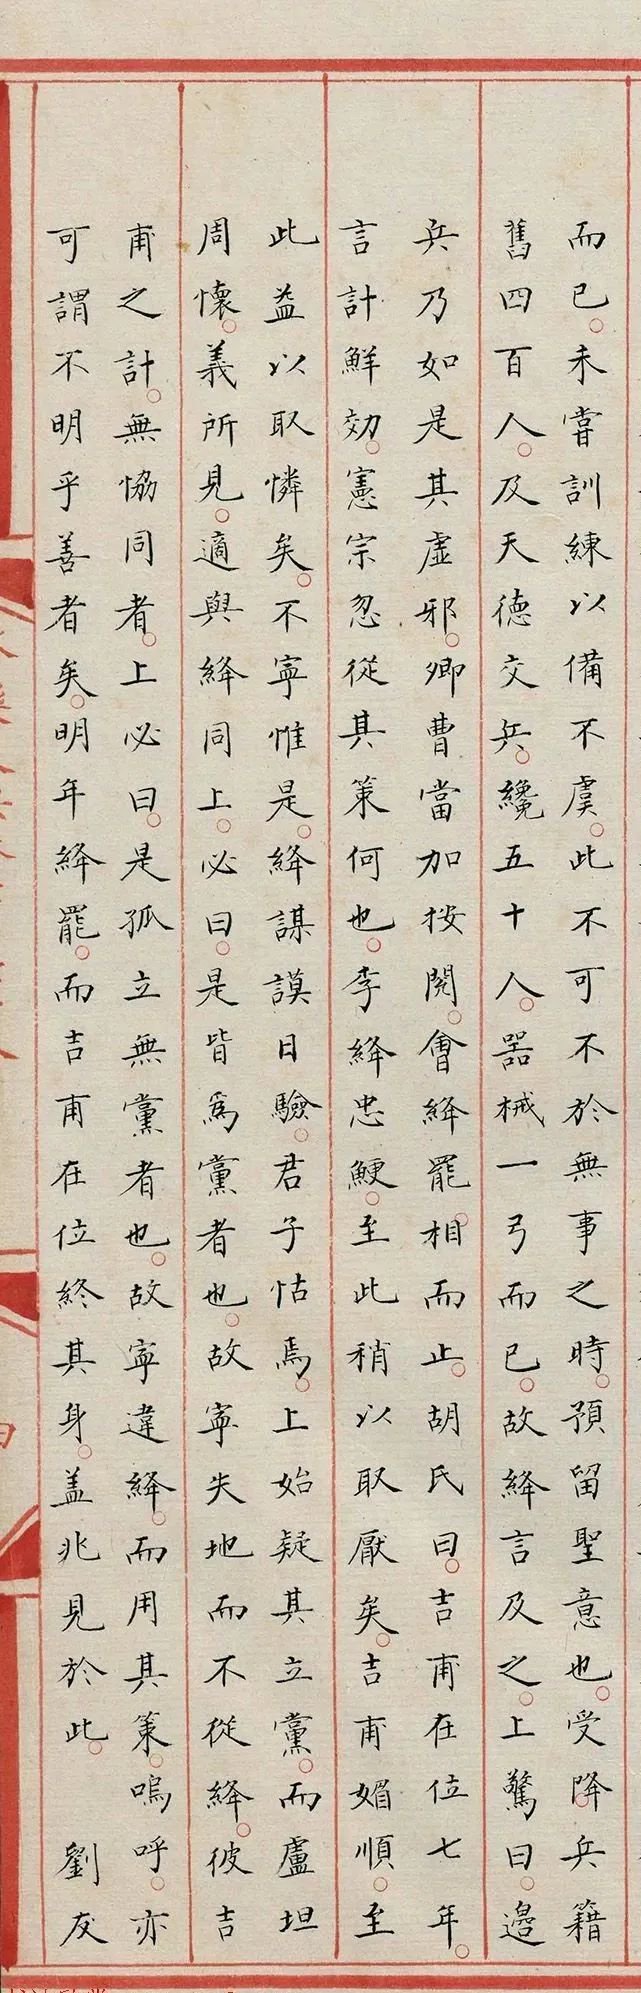 而已。未嘗訓練以備不虞。此不可不於無事之時。預留聖意也。受降兵籍
舊四百人。及天德交兵。纔五十人。器械一弓而已。故絳言及之。上驚曰。邊
兵乃如是其虛邪。卿曹當加按閱。會絳罷相而止。胡氏曰。吉甫在位七年。
言計鮮効。憲宗忽從其策何也。李絳忠鯁。至此稍以取厭矣。吉甫媚順。至
此益以取憐矣。不寧惟是。絳謀謨日驗。君子怙焉。上始疑其立黨。而盧坦
周懷。義所見。適與絳同上。必曰。是皆爲黨者也。故寧失地而不從絳。彼吉
甫之計。無恊同者。上必曰。是孤立無黨者也。故寧違絳。而用其策。嗚呼。亦
可謂不明乎善者矣。明年絳罷。而吉甫在位終其身。盖兆見於此。 劉友